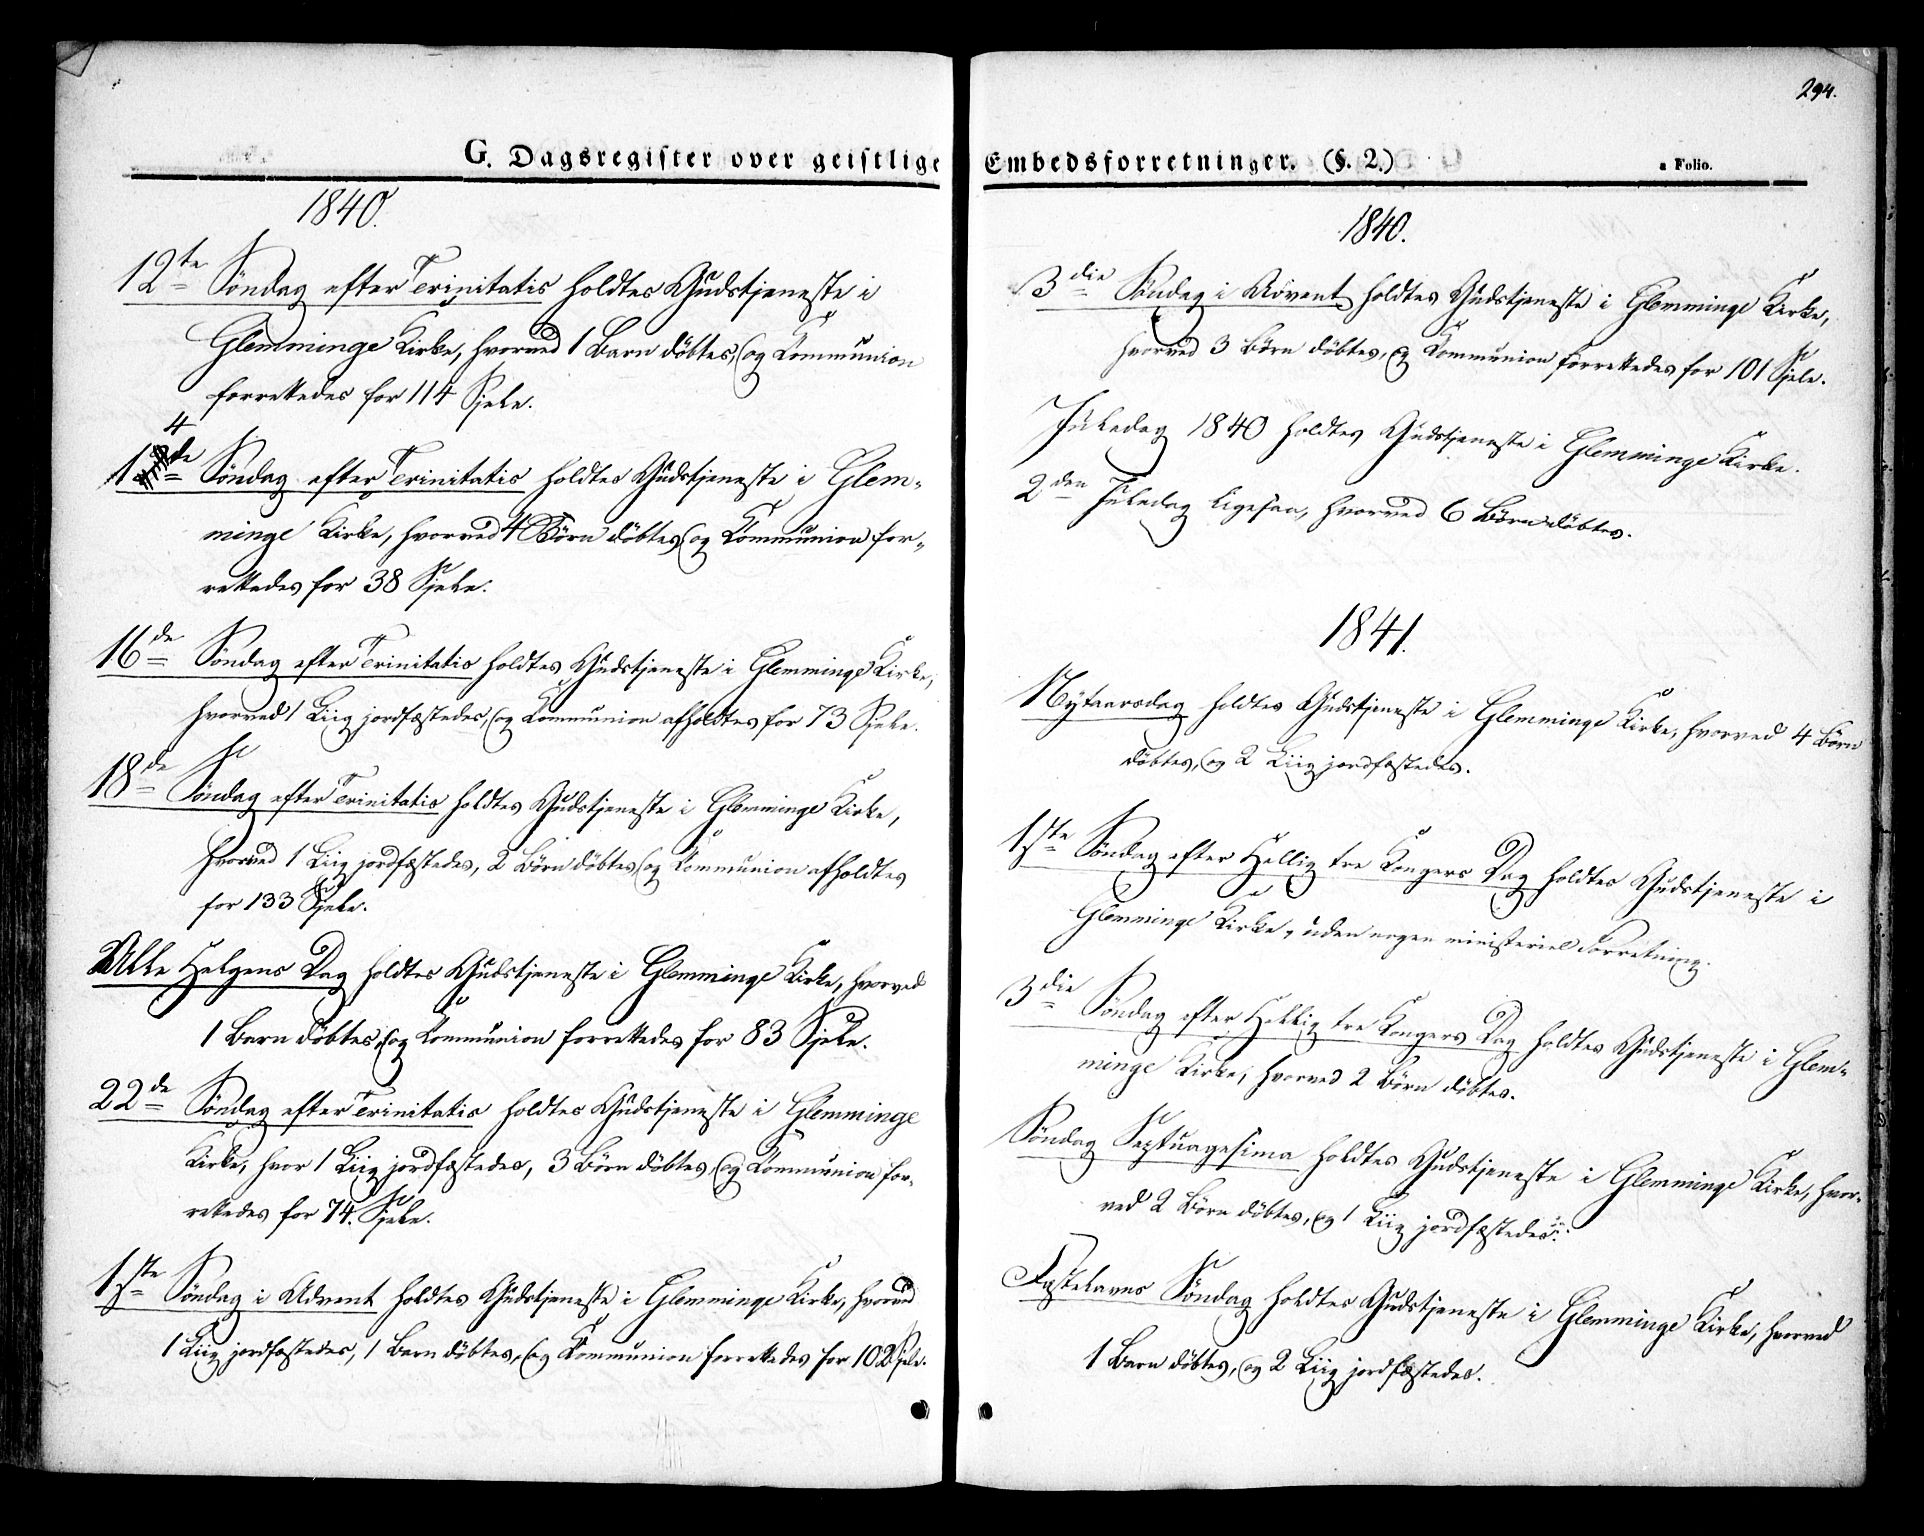 G. Dagsregister over geistlige
1840.
12te Søndag efter Trinitatis holdtes Gudstjeneste i
Glemminge Kirke, hvorved 1 Barn døbtes, og Kommunion
forrettedes for 114 Sjele.
4
1de Søndag efter Trinitatis holdtes Gudstjeneste i Glem-
minge Kirke, hvorved 4 Børn døbtes, og Kommunion for-
rettedes for 38 Sjele.
16de Søndag efter Trinitatis holdtes Gudstjeneste i Glemminge Kirke,
hvorved 1 Liig jordfæstedes, og Kommunion afholdtes for 73 Sjele.
18de Søndag efter Trinitatis holdtes Gudstjeneste i Glemminge Kirke,
hvorved 1 Liig jordfæstedes, 2 Børn døbtes, og Kommunion afholdtes
for 133 Sjele.
Alle Helgens Dag holdtes Gudstjeneste i Glemminge Kirke, hvorved
1 Barn døbtes, og Kommunion forrettedes for 83 Sjele.
22de Søndag efter Trinitatis holdtes Gudstjeneste i Glemminge
Kirke, hvor 1 Liig jordfæstedes, 3 Børn døbtes, og Kommunion for-
rettedes for 74. Sjele.
1ste Søndag i Advent holdtes Gudstjeneste i Glemminge Kirke, hvorved
1 Liig jordfæstedes, 1 Barn døbtes, og Kommunion forrettedes for 102 Sjele.
294.
Embedsforretninger. (§. 2.)
a Folio.
1840.
3die Søndag i Advent holdtes Gudstjeneste i Glemminge Kirke,
hvorved 3 Børn døbtes, og Kommunion forrettedes for 101 Sjele.
Juledag 1840 holdtes Gudstjeneste i Glemminge Kirke.
2den Juledag ligesaa, hvorved 6 Børn døbtes.
1841.
Nytaarsdag holdtes Gudstjeneste i Glemminge Kirke, hvorved 4 Børn
døbtes, og 2 Liig jordfæstedes.
1ste Søndag efter Hellig tre Kongers Dag holdtes Gudstjeneste i
Glemminge Kirke, uden nogen ministeriel Forretning.
3die Søndag efter Hellig tre Kongers Dag holdtes Gudstjeneste i Glem-
minge Kirke, hvorved 2 Børn døbtes.
Søndag Septuagesima holdtes Gudstjeneste i Glemminge Kirke, hvor-
ved 2 Børn døbtes, og 1 Liig jordfæstedes.
Fastelavns Søndag holdtes Gudstjeneste i Glemminge Kirke, hvorved
1 Barn døbtes, og 2 Liig jordfæstedes.